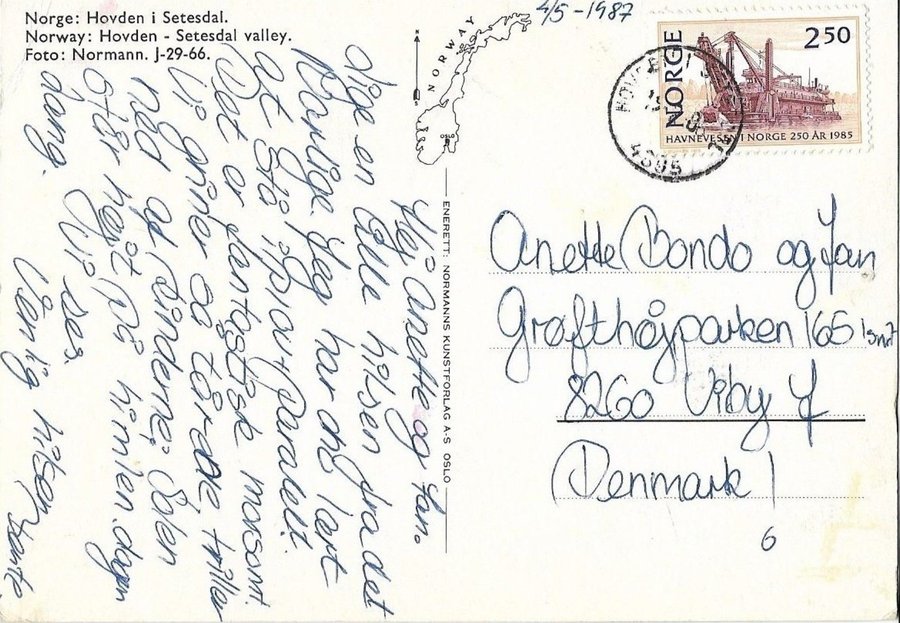 Norge: Hovden i Setesdal.
Norway: Hovden - Setesdal valley.
Foto: Normann. J-29-66.
NORWAY
OSLO
4/5-1987
NORGE
2 50
HAVNEVESEN I NORGE 250 ÅR 1985
ENERETT: NORMANNS KUNSTFORLAG A-S OSLO
Hej Anette og Jan.
lille hilsen fra det
Jeg har nu lært
at Stå
Det er fantastisk morsomt.
Vi griner og tårerne triller
ned af kinderne. Solen
står højt på himlen dagen
gang. Vi ses.
Kærlig hilsen
Anette Bondo og Jan
Grøfthøjparken 165
8260 Viby J
Denmark
6